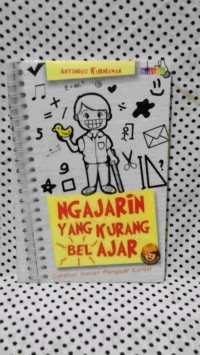 ANTONIUS KURNIAWAN
5
NGAJARIN
YANG KURANG
BEL AJAR
Catatan Harian Pengajar Kursus